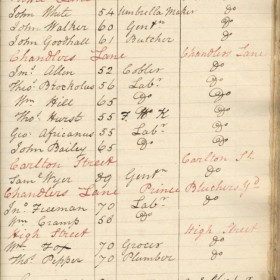 John White 54 Umbrella Maker Do
John Walker 60 Gentn Do
John Goodhall 61 Butcher Do
Chandlers Lane Chandlers Lane
Jno. Allen 52 Cobler Do
Thos. Brockolus 56 Labr. Do
Wm Hill 65 Do Do
Thos. Hurst 55 F Wk K Do
Geo. Africanus 55 Labr. Do
John Bailey 65 Do Do
Carlton Street Carlton St
Saml. Wyer Gentn Do
Chandlers Lane Prince Bluchers Yd
Jno. Freeman 70 Labr. Do
Wm Cramp 56 Do Do
High Street High Street
Wm Fox 70 Grocer Do
Thos. Pepper 70 Plumber Do